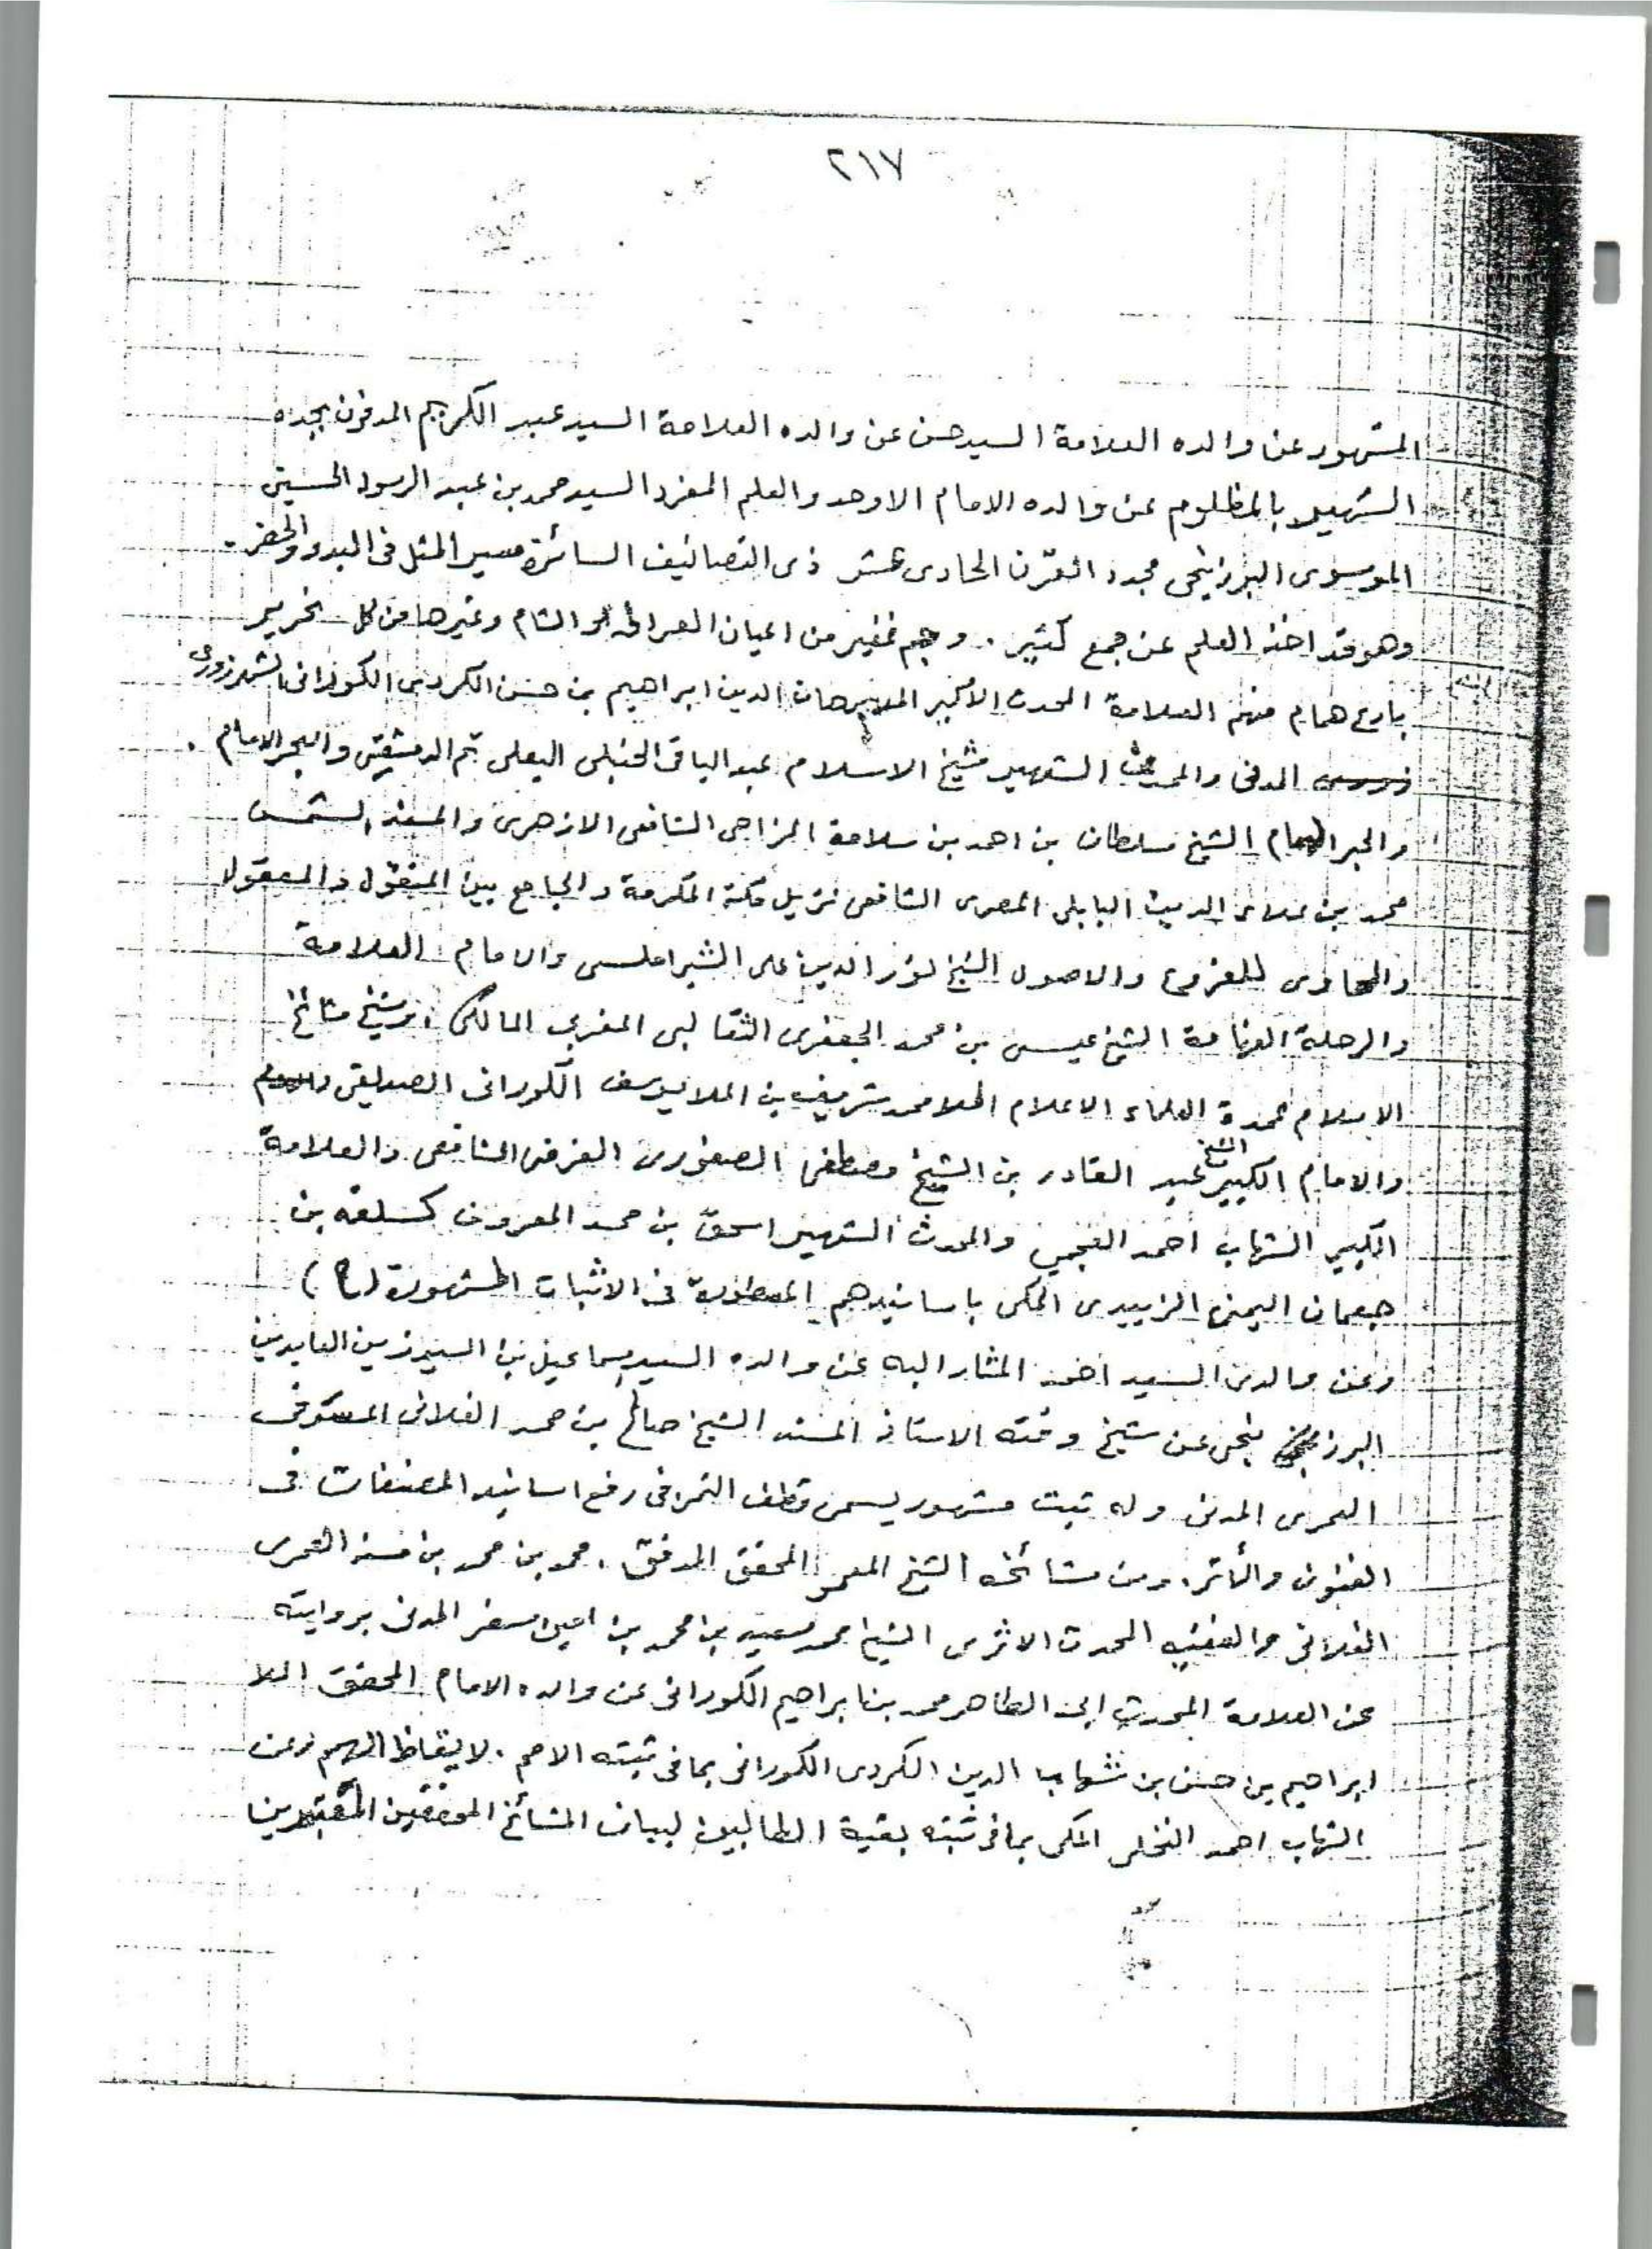 ٢١٧
المشهور عن والده العلامة السيد حسن عن والده العلامة السيد عبد الكريم المدفون بجده
الشهير بالمظلوم عن والده الامام الاوحد والعلم المفرد السيد محمد بن عبد الرسول الحسيني
الموسوى البرزنجى مجدد القرن الحادى عشر ذى التصانيف السائرة مسير المثل فى البدو والحضر
وهو قد اخذ العلم عن جمع كثير . وجم غفير من اعيان العراق والشام وغيرها من كل نحرير
بارع همام منهم العلامة المحدث الاكبر الملا برهان الدين ابراهيم بن حسن الكردى الكورانى الشهرزورى
المدنى والمحدث الشهير شيخ الاسلام عبد الباقى الحنبلى البعلى ثم الدمشقى والبحر الامام .
والحبر الهمام الشيخ سلطان بن احمد بن سلامة المزاحى الشافعى الازهرى والمسند الشمس
محمد بن علاء الدين البابلى المصرى الشافعى نزيل مكة المكرمة والجامع بين المنقول والمعقول
والحاوى للفروع والاصول الشيخ نور الدين على الشبراملسى والامام العلامة
والرحلة الفهامة الشيخ عيسى بن محمد الجعفرى الثعالبى المغربى المالكى وشيخ مشائخ
الاسلام عمدة العلماء الاعلام الملا محمد شريف بن الملا يوسف الكورانى الصديقى
والامام الكبير الشيخ عبد القادر بن الشيخ مصطفى الصفورى الفرضى الشافعى والعلامة
الكبير الشهاب احمد العجمى والمحدث الشهير اسحق بن محمد المعروف كسلفه بن
جعمان اليمنى الزبيدى المكى باسانيدهم المسطورة فى الاثبات المشهورة (ح)
وعن والدى السيد احمد المشار اليه عن والده السيد اسماعيل بن السيد زين العابدين
البرزنجى عن شيخ وقته الاستاذ المسند الشيخ صالح بن محمد الفلانى المسوفى
العمرى المدنى وله ثبت مشهور يسمى قطف الثمر فى رفع اسانيد المصنفات فى
الفنون والأثر. ومن مشائخه الشيخ المعمر المحقق المدقق . محمد بن محمد بن سنه العمرى
الفلانى والفقيه المحدث الاثرى الشيخ محمد سعيد بن محمد بن امين سفر المدنى بروايته
عن العلامة المحدث ابى الطاهر محمد بن ابراهيم الكورانى عن والده الامام المحقق الملا
ابراهيم بن حسن بن شهاب الدين الكردى الكورانى بما فى ثبته الامم . لايقاظ الهمم وعن
الشهاب احمد النخلى المكى بما فى ثبته بغية الطالبين لبيان المشائخ المحققين المعتمدين